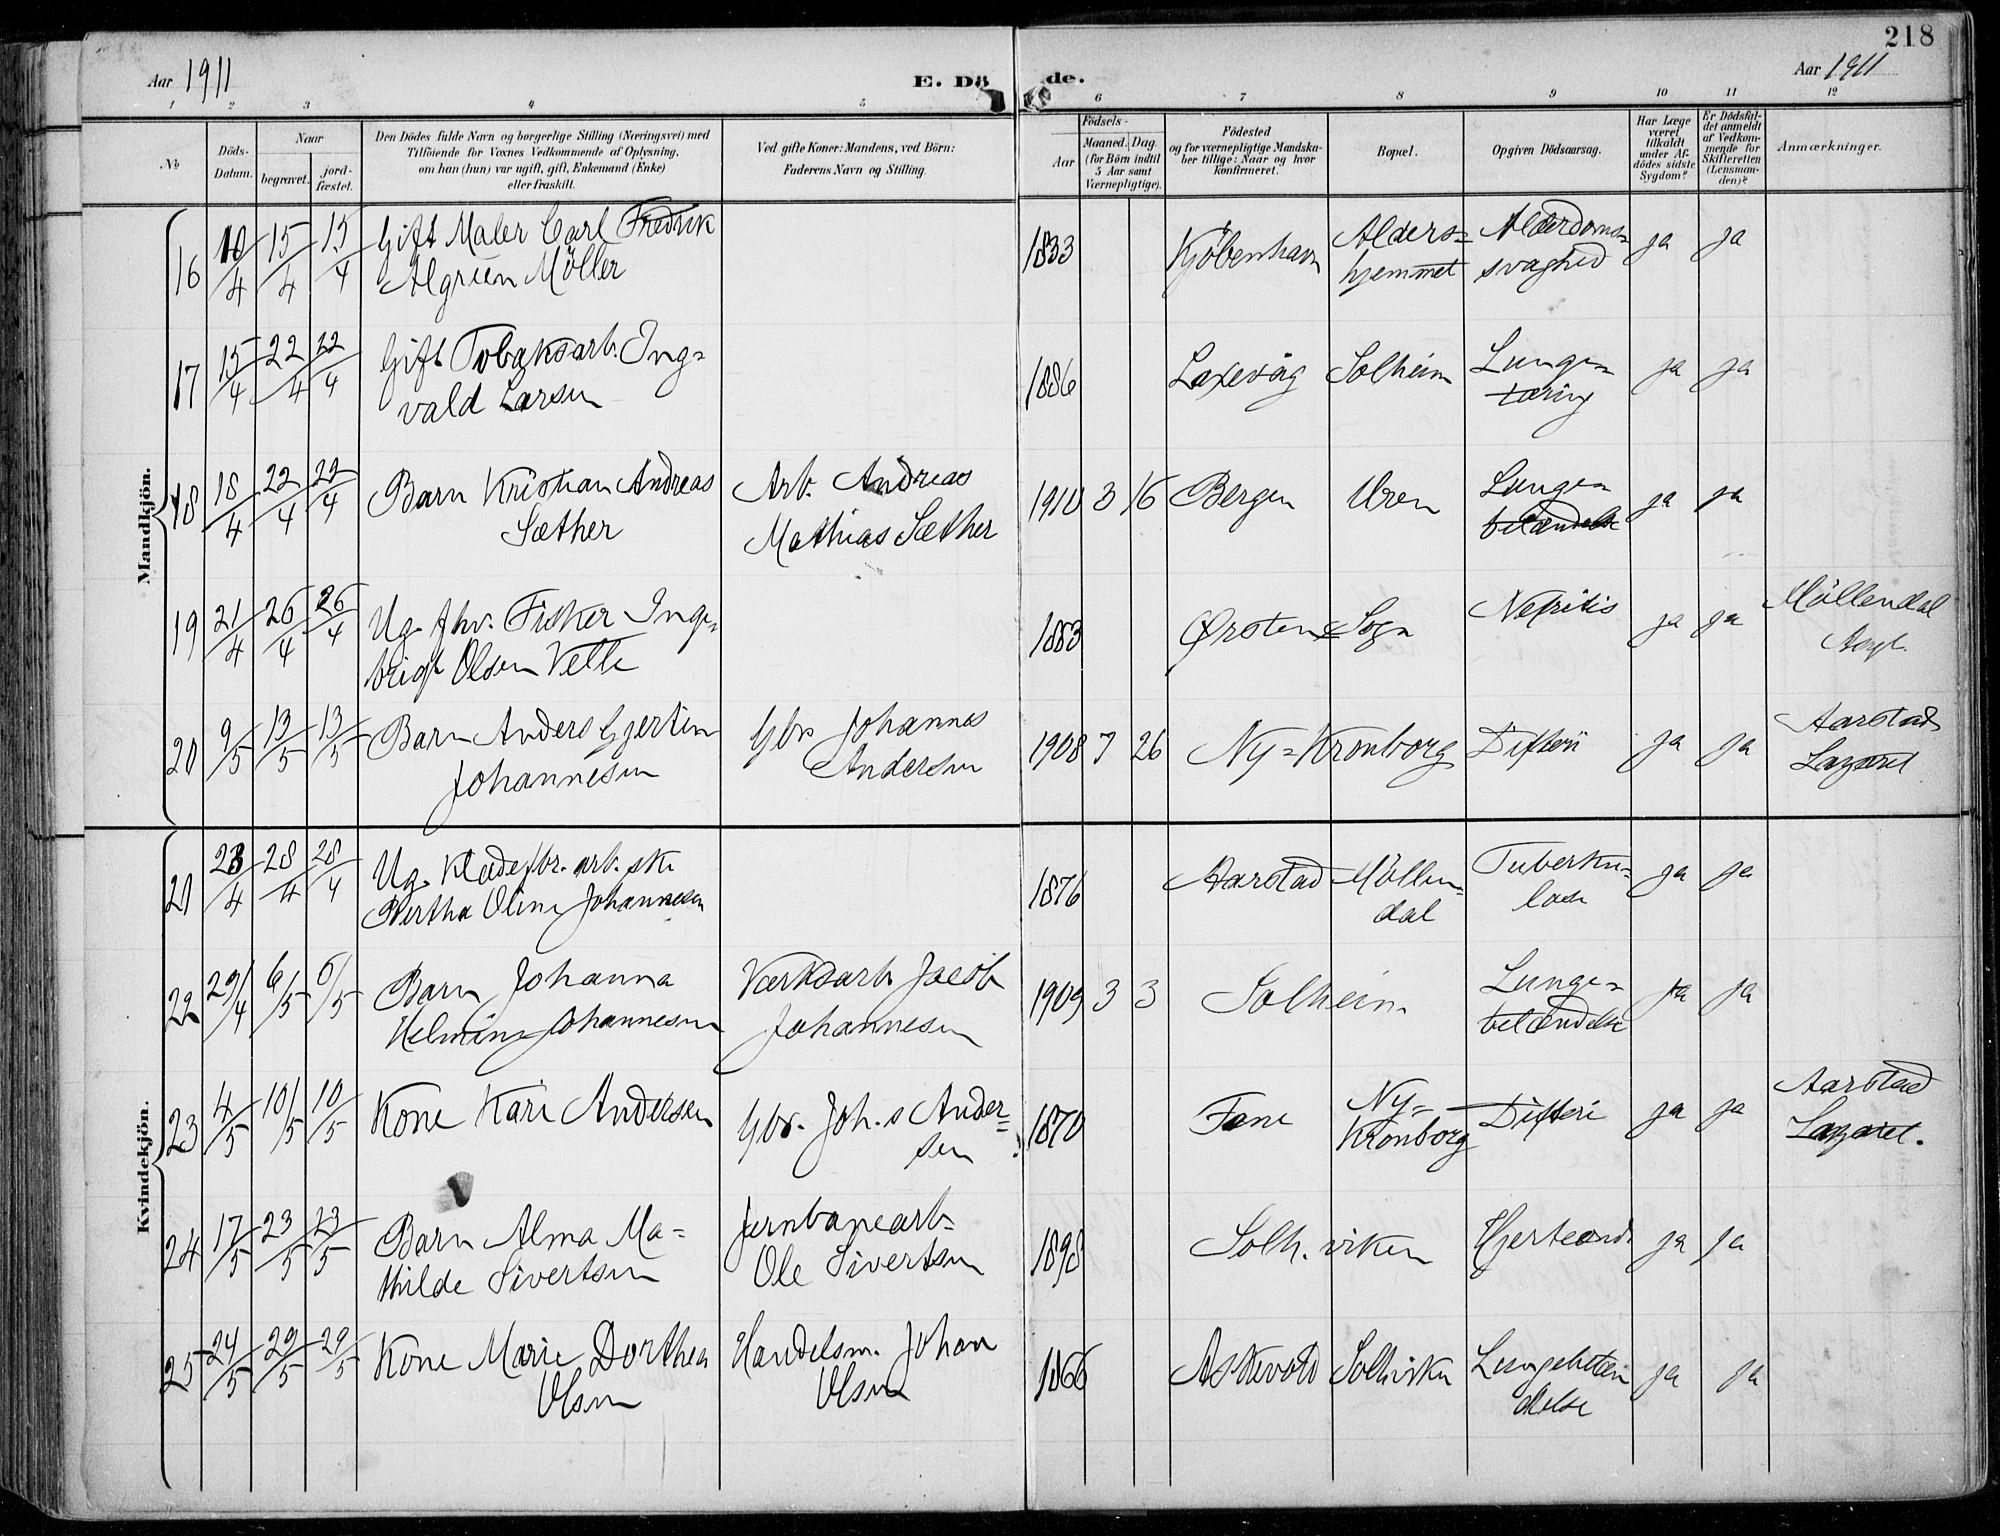 218
Aar 1911
E. Dö
de.
Aar 1911
1 2 3 4 5 6 7 8 9 10 11 12
No
Döds-
Datum.
Naar
begravet.
jord-
fæstet.
Den Dödes fulde Navn og borgerlige Stilling (Næringsvei) med
Tilföiende for Voxnes Vedkommende af Oplysning,
om han (hun) var ugift, gift, Enkemand (Enke)
eller fraskilt.
Ved gifte Koner: Mandens, ved Börn:
Faderens Navn og Stilling.
Födsels-
Aar
Maaned. Dag.
(for Börn indtil
5 Aar samt
Værnepligtige).
Födested
og for værnepligtige Mandska-
ber tillige: Naar og hvor
konfirmeret.
Bopæl.
Opgiven Dödsaarsag.
Har Læge
været
tilkaldt
under Af-
dödes sidste
Sygdom?
Er Dödsfal-
det anmeldt
af Vedkom-
mende for
Skifteretten
(Lensman-
den)?
Anmærkninger.
Mandkjön.
16 10/4 15/4 15/4 Gift Maler Carl Fredrik 1833 Kjöbenhavn Alders= Alderdoms= ja ja
Algreen Möller hjemmet svaghed
17 15/4 22/4 22/4 Gift Tobaksarb. Ing= 1886 Laxevåg Solheim Lunge= ja ja
vald Larsen tæring
18 18/4 22/4 22/4 Barn Kristian Andreas Arb. Andreas 1910 3 16 Bergen Uren Lunge= ja ja
Sæther Mathias Sæther betændelse
19 21/4 26/4 26/4 Ug. fhv. Fisker Inge= 1883 Ørsten Sogn Nefritis ja ja Möllendal
brigt Olsen Vette Asyl.
20 9/5 13/5 13/5 Barn Anders Gjertin Gbr Johannes 1908 7 26 Ny=Kronborg Difteri ja ja Aarstad
Johannesen Andersen Lazaret
Kvindekjön.
21 23/4 28/4 28/4 Ug. Klædefbr. arb. ske 1876 Aarstad Möllen= Tuberku= ja ja
Bertha Oline Johannesen dal lose
22 29/4 6/5 6/5 Barn Johanna Værksarb. Jacob 1909 3 3 Solheim Lunge= ja ja
Helmine Johannesen Johannesen betændelse
23 4/5 10/5 10/5 Kone Kari Andersen Gbr. Joh.s Ander= 1870 Fane Ny= Difteri ja ja Aarstad
sen Kronborg Lazaret.
24 17/5 23/5 23/5 Barn Alma Ma= Jernbanearb. 1898 Solh.viken Hjerteond. ja ja
thilde Sivertsen Ole Sivertsen
25 24/5 29/5 29/5 Kone Marie Dorthea Handelsm. Johan 1866 Askevold Solhviken Lungebetæn ja ja
Olsen Olsen delse